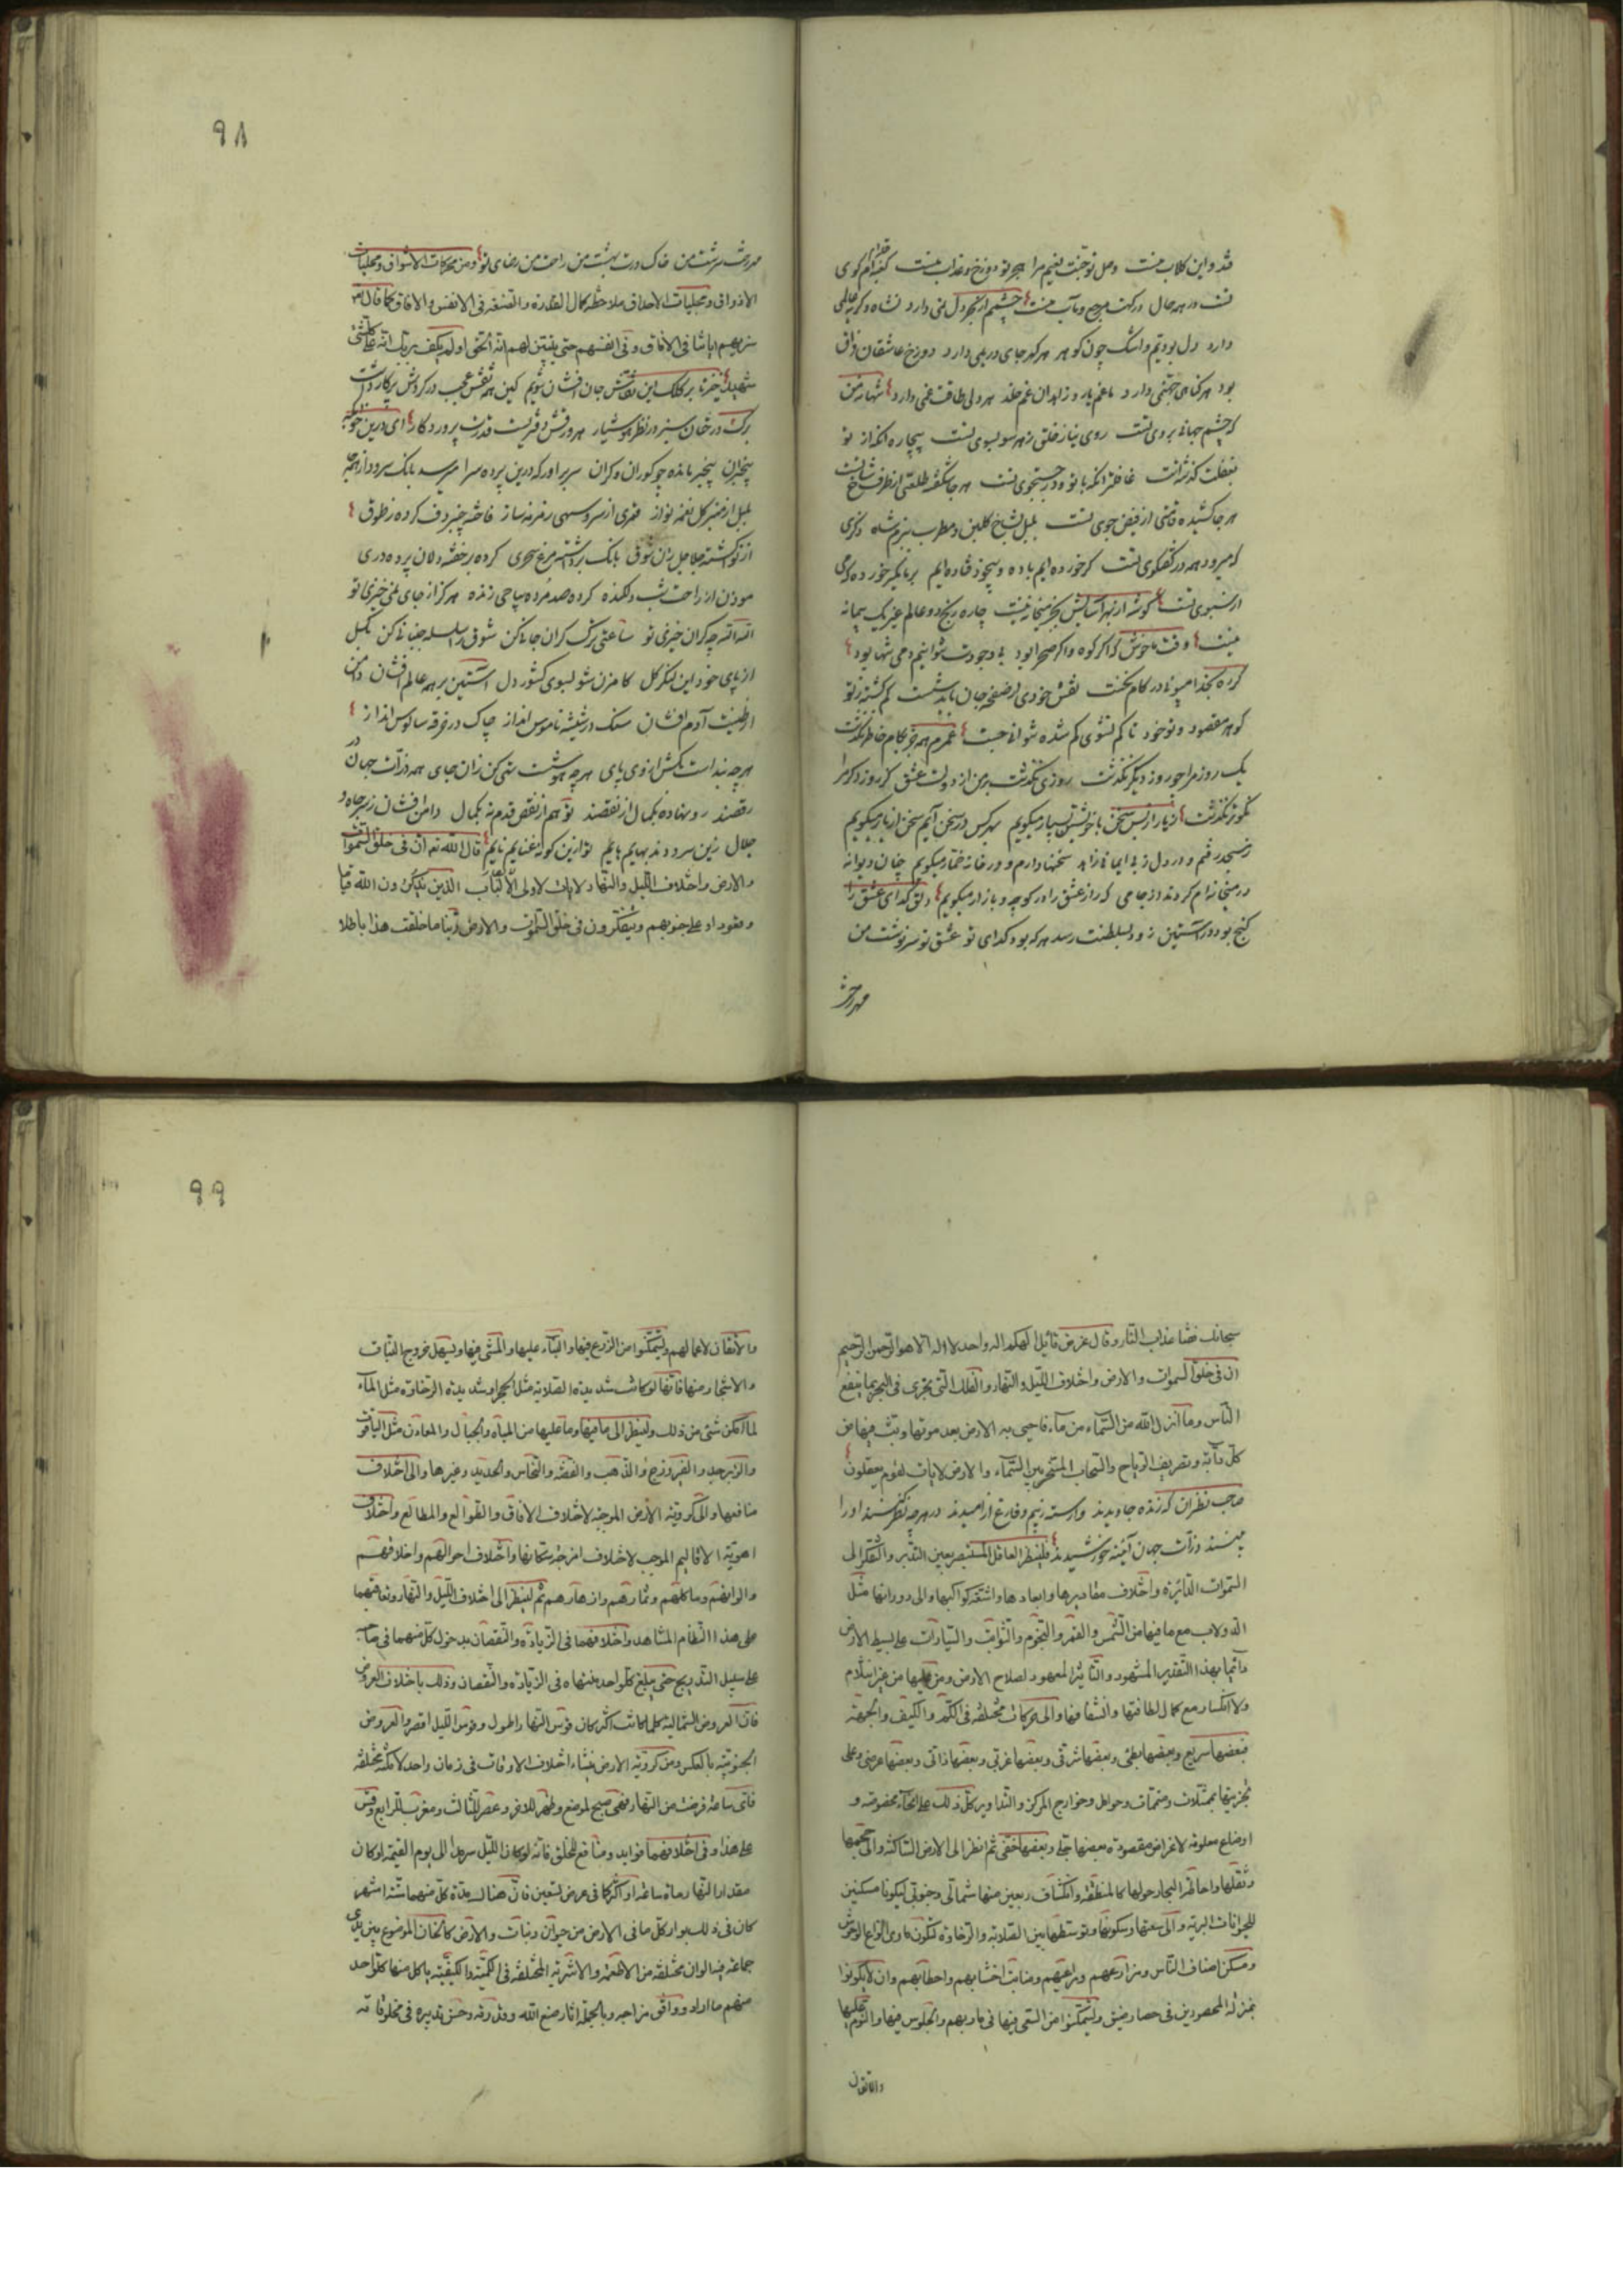 قد و این کلاب منست وصل تو جنت نعیم مرا هجر تو دوزخ و عذاب منست کعبه ام کوی
تست در همه حال درکهت مرجع و مآب منست چشمم از بحر دل نمی دارد
دارد دل بو دیم و اشک چون کوهر هر کهر جای در یمی دارد دوزخ عاشقان فراق
بود هر کناهی جهنمی دارد ما غم یار و زاهدان غم خلد هر دلی طاقت غمی دارد نه تنها من
که چشم جهانی بروی تست روی نیاز خلق ز هر سو بسوی تست بیچاره آنکه از تو
بغفلت کذشته است غافلتر آنکه با تو و در جستجوی تست هر جا شکفته طلعتی از
هر جا کشیده قامتی از فیض جوی تست بلبل بشاخ کلبن و مطرب ببزم شاه
که میرود همه در کفتکوی تست کر خورده ایم باده و بیخود فتاده ایم بر ما مکیر خورده که می
از سبوی تست کوشه از بهر آسایش بجز میخانه نیست چاره رنج دو عالم غیر یک پیمانه
نیست وقت ما خوش که اکر کوه و اکر صحرا بود بی وجودت نتوانیم دمی تنها بود
نقش خودی از صفحه جان باید شست کم کشته ز تو
کوهر مقصود و تو خود تا کم نشوی کم شده نتوانی جست عمرم همه جز بکام خاطر نکذشت
یک روز مرا چو روز دیکر نکذشت روزی نکذشت بر من از دولت عشق کز روز دکر مرا
نکوتر نکذشت ز یار از بس سخن با خویشتن بسیار میکویم بهر کس در سخن آیم سخن از یار میکویم
سخنها دارم و در خانه خمار میکویم چنان دیوانه
در میخانه ام کردند از جامی که راز عشق را در کوچه و بازار میکویم دلق کدای عشق را
کنج بود در آستین زود بسلطنت رسد هر که بود کدای تو عشق تو سرنوشت من
مهر رخت
٩٨
مهر رخت سرشت من خاک درت بهشت من راحت من رضای تو و من محرکات الاشواق و مجلیات
الاذواق و مجلیات الاحداق ملاحظة کمال القدرة و الصنعة فی الانفس و الافاق کما قال الله
سنریهم ایاتنا فی الافاق و فی انفسهم حتی یتبین لهم انه الحق اولم یکف بربک انه علی کلشئ
شهید خیز تا بر کلک این نقاش جان افشان شویم کین همه نقش عجب در کردش پرکار داشت
برک درختان سبز در نظر هوشیار هر ورقش دفتریست قدرت پروردکار ای درین خوابکه
بیخبران بیخبر مانده چو کوران و کران سر براور که درین پرده سرا میرسد بانک سرود از همه جا
بلبل از منبر کل نغمه نواز قمری از سرو سهی زمزمه ساز فاخته چنبر دف کرده ز طوق
از نوا کشته جلاجل زن شوق بانک برداشته مرغ سحری کرده بر خفته دلان پرده دری
موذن از راحت شب دلکنده کرده صد مرده بیاحی زنده هرکز از جای نمی خیزی تو
الله الله چه کران خیزی تو ساعتی ترک کران جانی کن شوق را سلسله جنبانی کن بکسل
از پای خود این لنکر کل کامزن شو بسوی کشور دل آستین بر همه عالم افشان دامن
از طینت آدم افشان سنک در شیشه ناموس انداز چاک در خرقه سالوس انداز
هرچه بند است بکش از وی پای هرچه هوشت تهی کن زان جای همه ذرات جهان در
رقصند رو نهاده بکمال از نقصند تو هم از نقص قدم نه بکمال دامن افشان ز سر جاه و
جلال قال الله تع ان فی خلق السموات
والارض واختلاف اللیل والنهار لایات لاولی الالباب الذین یذکرون الله قیاما
وقعودا وعلی جنوبهم ویتفکرون فی خلق السموات والارض ربنا ما خلقت هذا باطلا
سبحانک فقنا عذاب النار وقال عز من قائل الهکم اله واحد لا اله الا هو الرحمن الرحیم
ان فی خلق السموات والارض واختلاف اللیل والنهار والفلک التی تجری فی البحر بما ینفع
الناس وما انزل الله من السماء من ماء فاحیی به الارض بعد موتها وبث فیها من
کل دآبة وتصریف الریاح والسحاب المسخر بین السماء والارض لایات لقوم یعقلون
صاحب نظران که زنده جاویدند وارسته ز بیم و فارغ از امیدند در هرچه نظر کنند اورا
بینند ذرات جهان آئینه خورشیدند فلینظر العاقل المستبصر بعین التدبر والتفکر الی
السموات الدائرة واختلاف مقادیرها وابعادها واشعة کواکبها والی دورانها مثل
الدولاب مع ما فیها من الشمس والقمر والنجوم والثوابت والسیارات علی بسیط الارض
دائما بهذا التقدیر المشهود والتاثیر المعهود لصلاح الارض ومن علیها من غیر انثلام
ولا انکسار مع کمال لطافتها وانشفافها والی حرکات مختلفة فی الکم والکیف والجهة
فبعضها سریع وبعضها بطئی وبعضها شرقی وبعضها غربی وبعضها ذاتی وبعضها عرضی وعلی
تجزیتها بممثلات ومتممات وحوامل وخوارج المرکز والتداویر کل ذلک علی انحآء مخصوصة و
اوضاع معلومة لاغراض مقصودة بعضها جلی وبعضها خفی ثم انظر الی الارض الساکنة والی حجمها
وثقلها واحاطة البحار حولها کالمنطقة وانکشاف ربعین منها شمالی وجنوبی لیکونا مسکنین
للحیوانات البریة والی سعتها وسکونها وتوسطها بین الصلابة والرخاوة لتکون ماوی انواع الوحوش
ومسکن اصناف الناس ومزارعهم ومراعیهم ومنابت اخشابهم واحطابهم وان لا یکونوا
بمنزلة المحصورین فی حصار ضیق ولیتمکنوا من السعی فیها فی ماربهم والجلوس فیها والنوم علیها
والاتقان
٩٩
والاتقان لاعمالهم ولیتمکنوا من الزرع فیها والبناء علیها والمشی فیها ولیسهل خروج النبات
والاشجار منها فانها لو کانت شدیدة الصلابة مثل الحجر او شدیدة الرخاوة مثل المآء
لما امکن شئ من ذلک ولینظر الی ما فیها وما علیها من المیاه والجبال والمعادن مثل الیاقوت
والزبرجد والفیروزج والذهب والفضة والنحاس والحدید وغیرها والی اختلاف
منافعها والی کرویة الارض الموجبة لاختلاف الافاق والطوالع والمطالع واختلاف
اهویة الاقالیم الموجب لاختلاف امزجة سکانها واختلاف احوالهم واخلاقهم
والوانهم وماکلهم وثمارهم وازهارهم ثم لینظر الی اختلاف اللیل والنهار وتعاقبهما
علی هذا النظام المشاهد واختلافهما فی الزیادة والنقصان بدخول کل منهما فی صاحبه
علی سبیل التدریج حتی یبلغ کل واحد منتهاه فی الزیادة والنقصان وذلک باختلاف العروض
فان العروض الشمالیة کلما کانت اکثر کان قوس النهار اطول وقوس اللیل اقصر والعروض
الجنوبیة بالعکس ومن کرویة الارض ینشاء اختلاف الاوقات فی زمان واحد لامکنة مختلفة
فای ساعة فرضت من النهار فهی صبح لموضع وظهر لاخر وعصر لثالث ومغرب لرابع وقس
علی هذا وفی اختلافهما فواید ومنافع للخلق فانه لو کان اللیل سرمدا الی یوم القیمة او کان
مقدار النهار مائة ساعة او اکثر کما فی عرض تسعین فان هنالک مدة کل منهما ستة اشهر
کان فی ذلک بوار کل ما فی الارض من حیوان ونبات والارض کالخان الموضوع بین یدی
جماعة فیه الوان مختلفة من الاطعمة والاشربة المختلفة فی الکمیة والکیفیة یاکل منها کل واحد
منهم ما اراد ووافق مزاجه وبالجملة اثار صنع الله وحسن تدبیره فی مخلوقاته